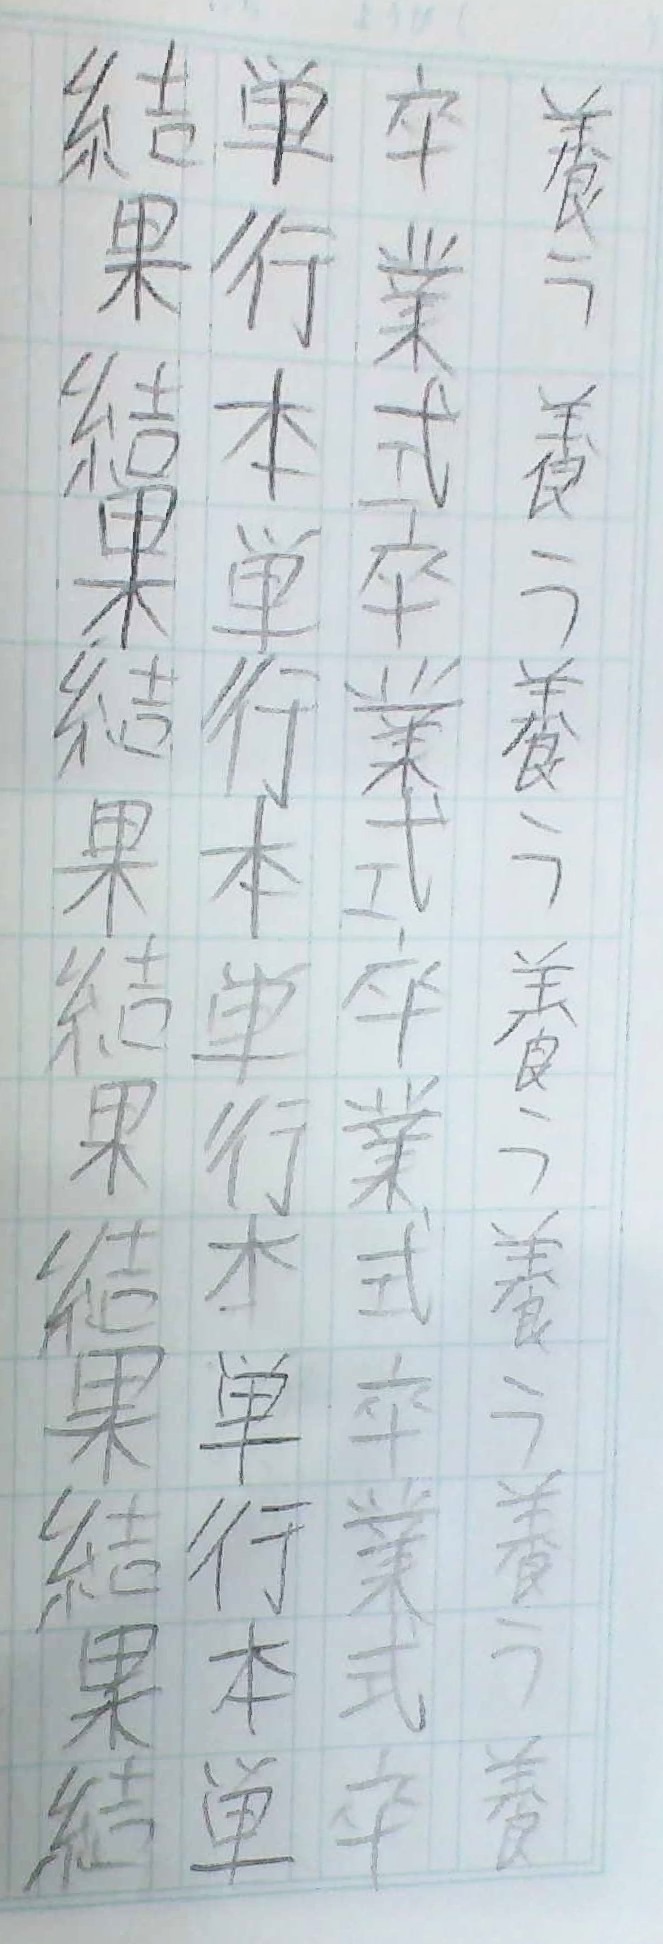 養う養う養う養う養う養う養
卒業式卒業式卒業式卒業式卒
単行本単行本単行本単行本単
結果結果結果結果結果結果結